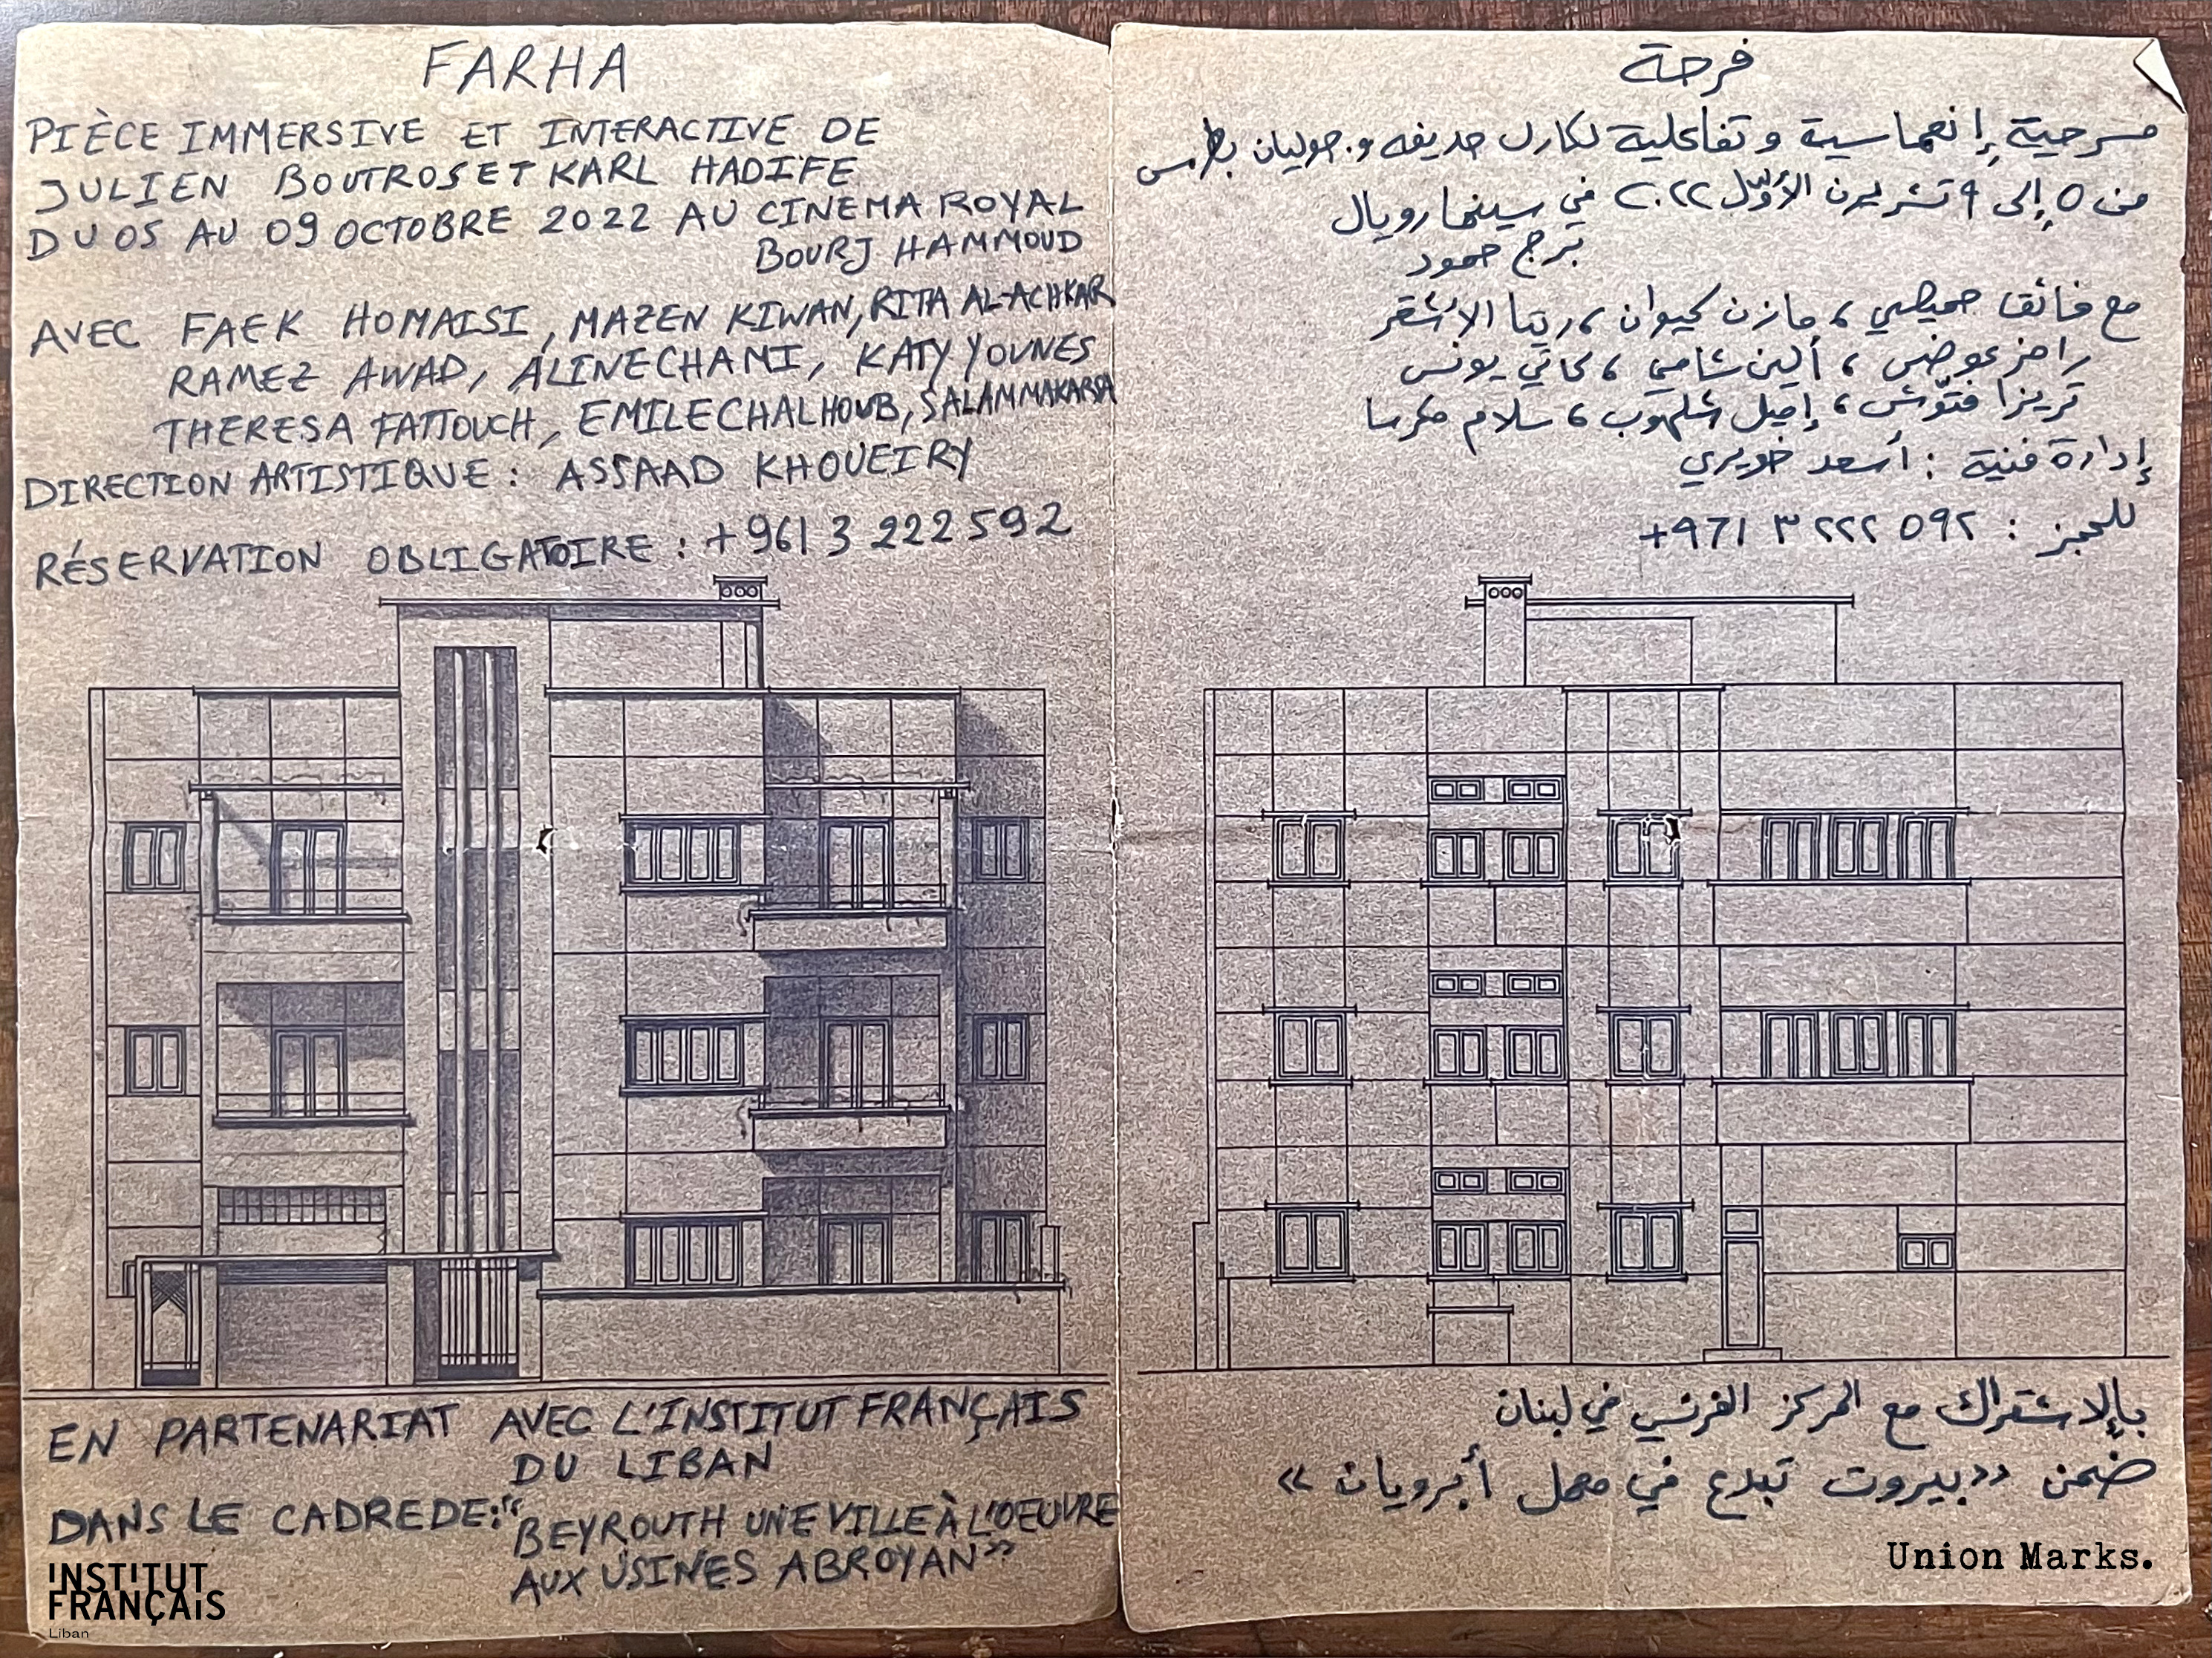 FARHA
PIÈCE IMMERSIVE ET INTERACTIVE DE
JULIEN BOUTROS ET KARL HADIFE
DU 05 AU 09 OCTOBRE 2022 AU CINEMA ROYAL
BOURJ HAMMOUD
AVEC FAEK HOMAISI, MAZEN KIWAN, RITA AL-ACHKAR
RAMEZ AWAD, ALINE CHAMI, KATY YOUNES
THERESA FATTOUCH, EMILE CHALHOUB, SALAM MAKARSA
DIRECTION ARTISTIQUE : ASSAAD KHOUEIRY
RÉSERVATION OBLIGATOIRE : +961 3 222 592
EN PARTENARIAT AVEC L'INSTITUT FRANÇAIS
DU LIBAN
DANS LE CADRE DE : "BEYROUTH UNE VILLE À L'OEUVRE
AUX USINES ABROYAN"
INSTITUT
FRANÇAIS
Liban
فرحة
مسرحية إنغماسية و تفاعلية لكارل حديفه و جوليان بطرس
من ٥ إلى ٩ تشرين الأوّل ٢٠٢٢ في سينما رويال
برج حمود
مع فائق حميصي، مازن كيوان، ريتا الاشقر
رامز عوض، ألين شامي، كاتي يونس
تريزا فتّوش، إميل شلهوب، سلام مكرسا
إدارة فنية : أسعد خويري
للحجز : +٩٦١ ٣ ٢٢٢ ٥٩٢
بإلاشتراك مع المركز الفرنسي في لبنان
ضمن «بيروت تبدع في معمل أبرويان»
Union Marks.